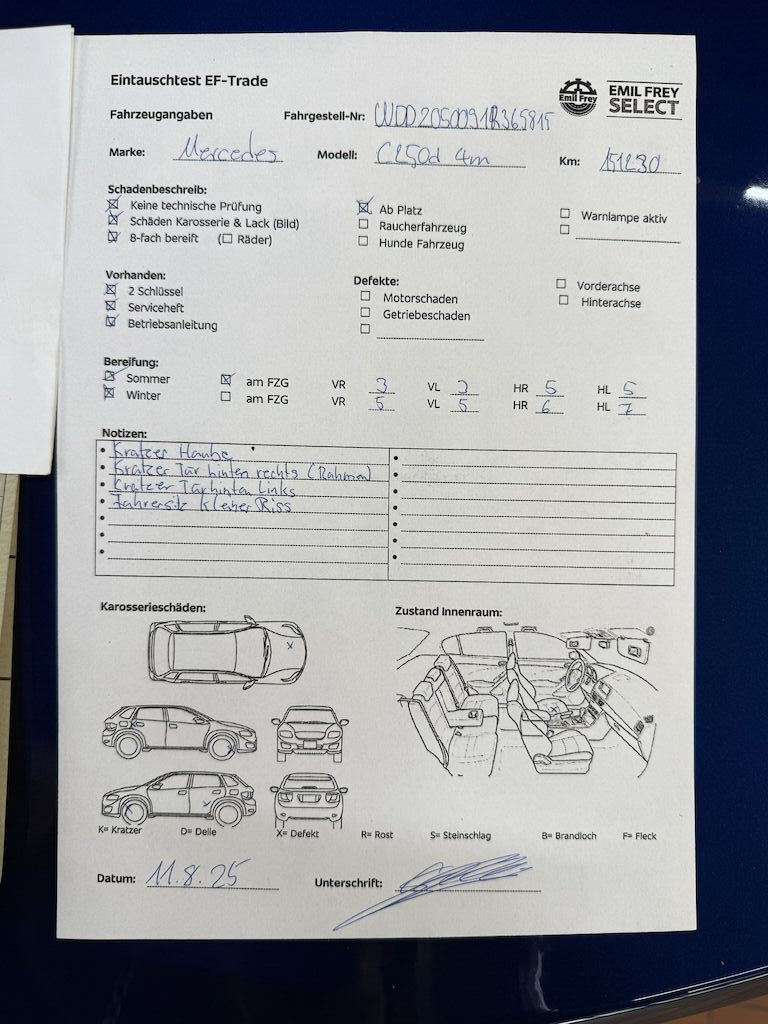 Eintauschtest EF-Trade
Emil Frey
EMIL FREY
SELECT
Fahrzeugangaben Fahrgestell-Nr: WDD2050091R365815
Marke: Mercedes Modell: C250d 4m Km: 151230
Schadenbeschreib:
☒ Keine technische Prüfung ☒ Ab Platz ☐ Warnlampe aktiv
☒ Schäden Karosserie & Lack (Bild) ☐ Raucherfahrzeug ☐
☒ 8-fach bereift (☐ Räder) ☐ Hunde Fahrzeug
Vorhanden: Defekte: ☐ Vorderachse
☒ 2 Schlüssel ☐ Motorschaden ☐ Hinterachse
☒ Serviceheft ☐ Getriebeschaden
☒ Betriebsanleitung ☐
Bereifung:
☒ Sommer ☒ am FZG VR 3 VL 3 HR 5 HL 5
☒ Winter ☐ am FZG VR 5 VL 5 HR 6 HL 7
Notizen:
• Kratzer Haube
• Kratzer Tür hinten rechts (Rahmen)
• Kratzer Tür hinten Links
• Fahrersitz kleiner Riss
Karosserieschäden: Zustand Innenraum:
K= Kratzer D= Delle X= Defekt R= Rost S= Steinschlag B= Brandloch F= Fleck
Datum: 11.8.25 Unterschrift: